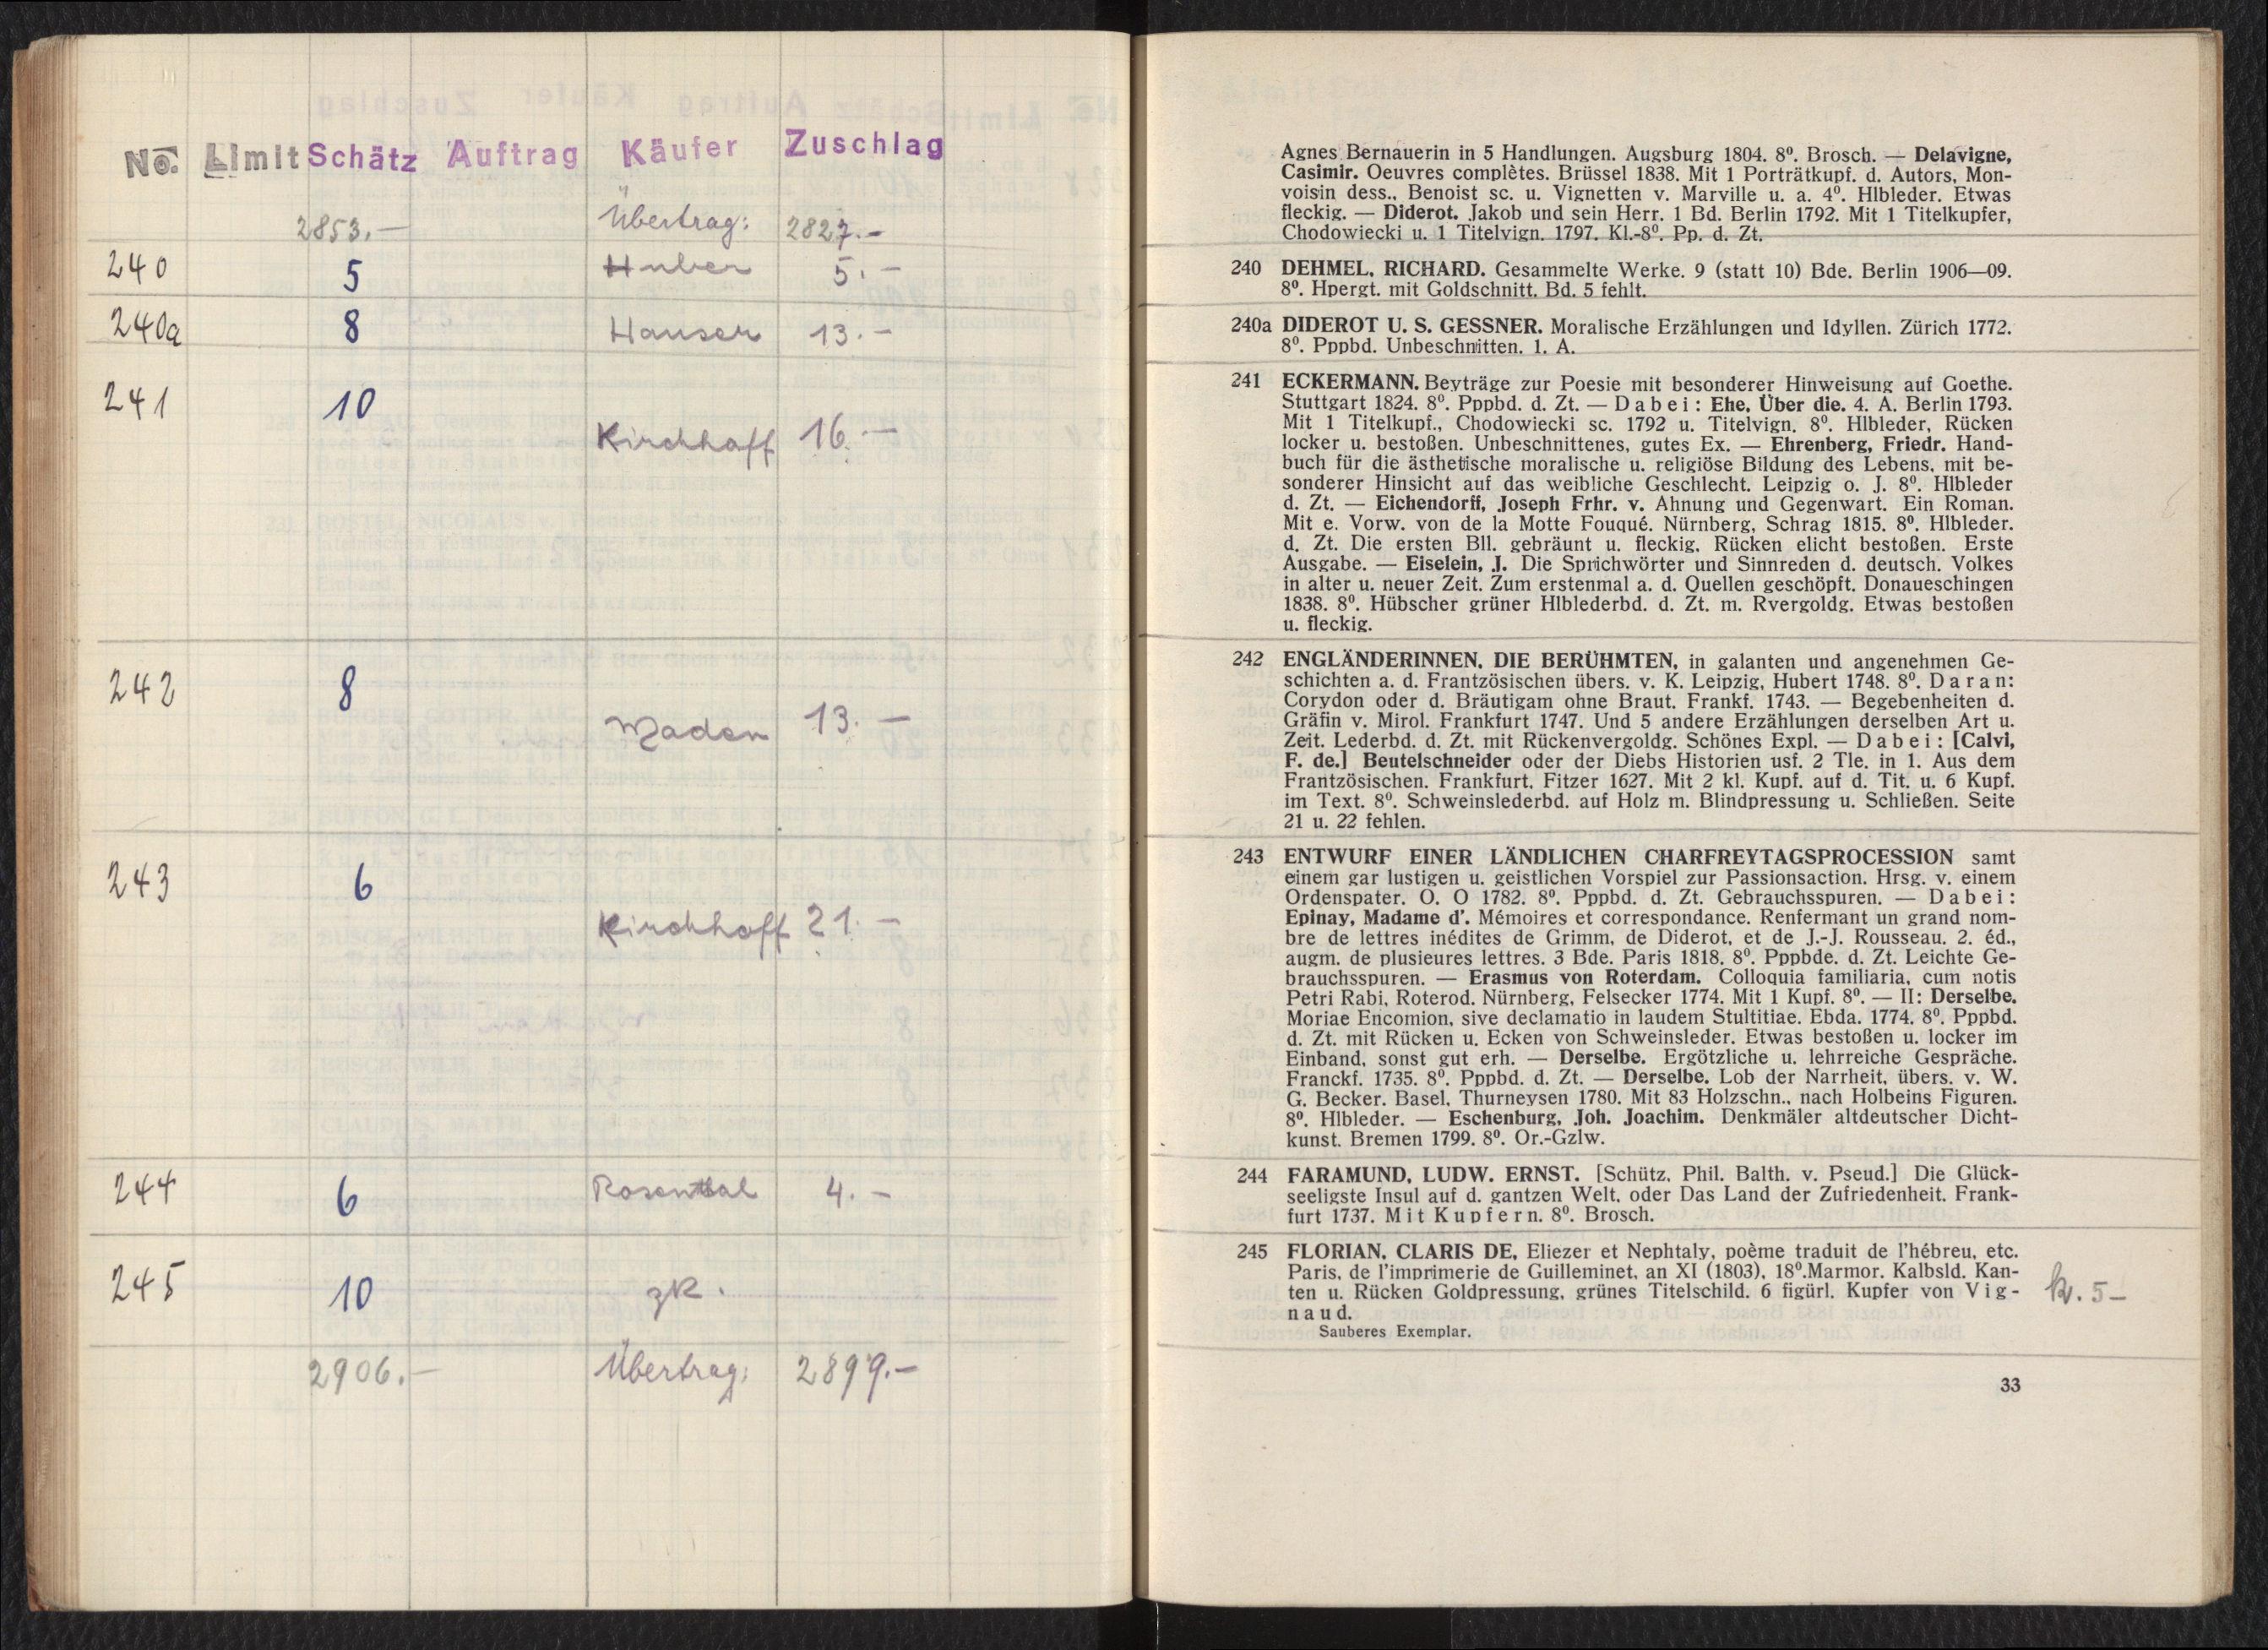 No. Limit Schätz Auftrag Käufer Zuschlag
2853.— Übertrag: 2827.—
240 5 Huber 5.—
240a 8 Hauser 13.—
241 10 Kirchhoff 16.—
242 8 Maden 13.—
243 6 Kirchhoff 21.—
244 6 Rosenthal 4.—
245 10 zk.
2906.— Übertrag: 2899.—
Agnes Bernauerin in 5 Handlungen. Augsburg 1804. 8⁰. Brosch. — Delavigne,
Casimir. Oeuvres complètes. Brüssel 1838. Mit 1 Porträtkupf. d. Autors, Mon-
voisin dess., Benoist sc. u. Vignetten v. Marville u. a. 4⁰. Hlbleder. Etwas
fleckig. — Diderot. Jakob und sein Herr. 1 Bd. Berlin 1792. Mit 1 Titelkupfer,
Chodowiecki u. 1 Titelvign. 1797. Kl.-8⁰. Pp. d. Zt.
240 DEHMEL, RICHARD. Gesammelte Werke. 9 (statt 10) Bde. Berlin 1906—09.
8⁰. Hpergt. mit Goldschnitt. Bd. 5 fehlt.
240a DIDEROT U. S. GESSNER. Moralische Erzählungen und Idyllen. Zürich 1772.
8⁰. Pppbd. Unbeschnitten. 1. A.
241 ECKERMANN. Beyträge zur Poesie mit besonderer Hinweisung auf Goethe.
Stuttgart 1824. 8⁰. Pppbd. d. Zt. — Dabei: Ehe, Über die. 4. A. Berlin 1793.
Mit 1 Titelkupf., Chodowiecki sc. 1792 u. Titelvign. 8⁰. Hlbleder, Rücken
locker u. bestoßen. Unbeschnittenes, gutes Ex. — Ehrenberg, Friedr. Hand-
buch für die ästhetische moralische u. religiöse Bildung des Lebens, mit be-
sonderer Hinsicht auf das weibliche Geschlecht. Leipzig o. J. 8⁰. Hlbleder
d. Zt. — Eichendorff, Joseph Frhr. v. Ahnung und Gegenwart. Ein Roman.
Mit e. Vorw. von de la Motte Fouqué. Nürnberg, Schrag 1815. 8⁰. Hlbleder.
d. Zt. Die ersten Bll. gebräunt u. fleckig, Rücken elicht bestoßen. Erste
Ausgabe. — Eiselein, J. Die Sprichwörter und Sinnreden d. deutsch. Volkes
in alter u. neuer Zeit. Zum erstenmal a. d. Quellen geschöpft. Donaueschingen
1838. 8⁰. Hübscher grüner Hlblederbd. d. Zt. m. Rvergoldg. Etwas bestoßen
u. fleckig.
242 ENGLÄNDERINNEN, DIE BERÜHMTEN, in galanten und angenehmen Ge-
schichten a. d. Frantzösischen übers. v. K. Leipzig, Hubert 1748. 8⁰. Daran:
Corydon oder d. Bräutigam ohne Braut. Frankf. 1743. — Begebenheiten d.
Gräfin v. Mirol. Frankfurt 1747. Und 5 andere Erzählungen derselben Art u.
Zeit. Lederbd. d. Zt. mit Rückenvergoldg. Schönes Expl. — Dabei: [Calvi,
F. de.] Beutelschneider oder der Diebs Historien usf. 2 Tle. in 1. Aus dem
Frantzösischen. Frankfurt, Fitzer 1627. Mit 2 kl. Kupf. auf d. Tit. u. 6 Kupf.
im Text. 8⁰. Schweinslederbd. auf Holz m. Blindpressung u. Schließen. Seite
21 u. 22 fehlen.
243 ENTWURF EINER LÄNDLICHEN CHARFREYTAGSPROCESSION samt
einem gar lustigen u. geistlichen Vorspiel zur Passionsaction. Hrsg. v. einem
Ordenspater. O. O 1782. 8⁰. Pppbd. d. Zt. Gebrauchsspuren. — Dabei:
Epinay, Madame d'. Mémoires et correspondance. Renfermant un grand nom-
bre de lettres inédites de Grimm, de Diderot, et de J.-J. Rousseau. 2. éd.,
augm. de plusieures lettres. 3 Bde. Paris 1818. 8⁰. Pppbde. d. Zt. Leichte Ge-
brauchsspuren. — Erasmus von Roterdam. Colloquia familiaria, cum notis
Petri Rabi, Roterod. Nürnberg, Felsecker 1774. Mit 1 Kupf. 8⁰. — II: Derselbe.
Moriae Encomion, sive declamatio in laudem Stultitiae. Ebda. 1774. 8⁰. Pppbd.
d. Zt. mit Rücken u. Ecken von Schweinsleder. Etwas bestoßen u. locker im
Einband, sonst gut erh. — Derselbe. Ergötzliche u. lehrreiche Gespräche.
Franckf. 1735. 8⁰. Pppbd. d. Zt. — Derselbe. Lob der Narrheit, übers. v. W.
G. Becker. Basel, Thurneysen 1780. Mit 83 Holzschn., nach Holbeins Figuren.
8⁰. Hlbleder. — Eschenburg, Joh. Joachim. Denkmäler altdeutscher Dicht-
kunst. Bremen 1799. 8⁰. Or.-Gzlw.
244 FARAMUND, LUDW. ERNST. [Schütz, Phil. Balth. v. Pseud.] Die Glück-
seeligste Insul auf d. gantzen Welt, oder Das Land der Zufriedenheit. Frank-
furt 1737. Mit Kupfern. 8⁰. Brosch.
245 FLORIAN, CLARIS DE, Eliezer et Nephtaly, poème traduit de l'hébreu, etc.
Paris, de l'imprimerie de Guilleminet, an XI (1803), 18⁰.Marmor. Kalbsld. Kan-
ten u. Rücken Goldpressung, grünes Titelschild. 6 figürl. Kupfer von Vig- k. 5—
naud.
Sauberes Exemplar.
33